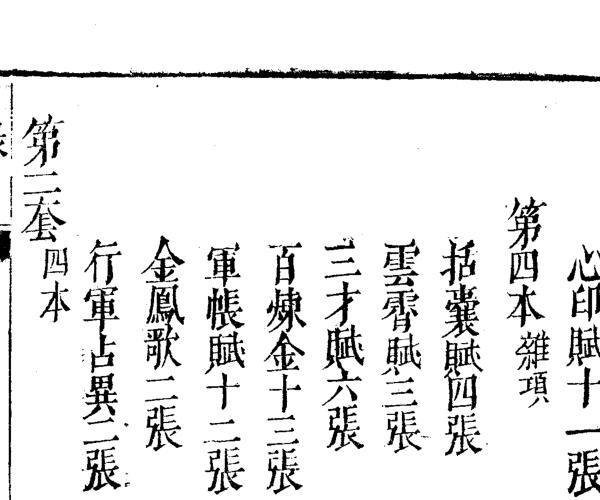 心印賦十一張
第四本雜項
括囊賦四張
雲霄賦三張
三才賦六張
百煉金十三張
軍帳賦十二張
金鳳歌二張
行軍占異二張
第二套四本